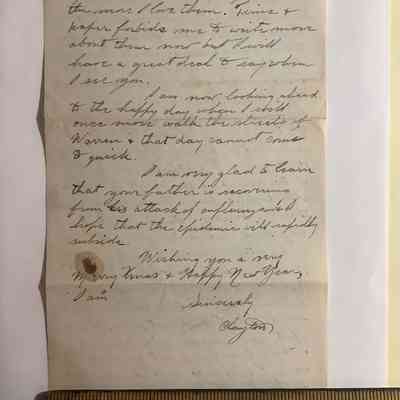 the more I love them. Time &
paper forbids me to write more
about them now but I will
have a great deal to say when
I see you.
I am now looking ahead
to the happy day when I shall
once more walk the streets of
Warren & that day cannot come
to quick.
I am very glad to learn
that your father is recovering
from his attack of influenza & I
hope that the epidemic will rapidly
subside.
Wishing you a very
Merry Xmas & Happy New Year,
I am
Sincerely
Clayton